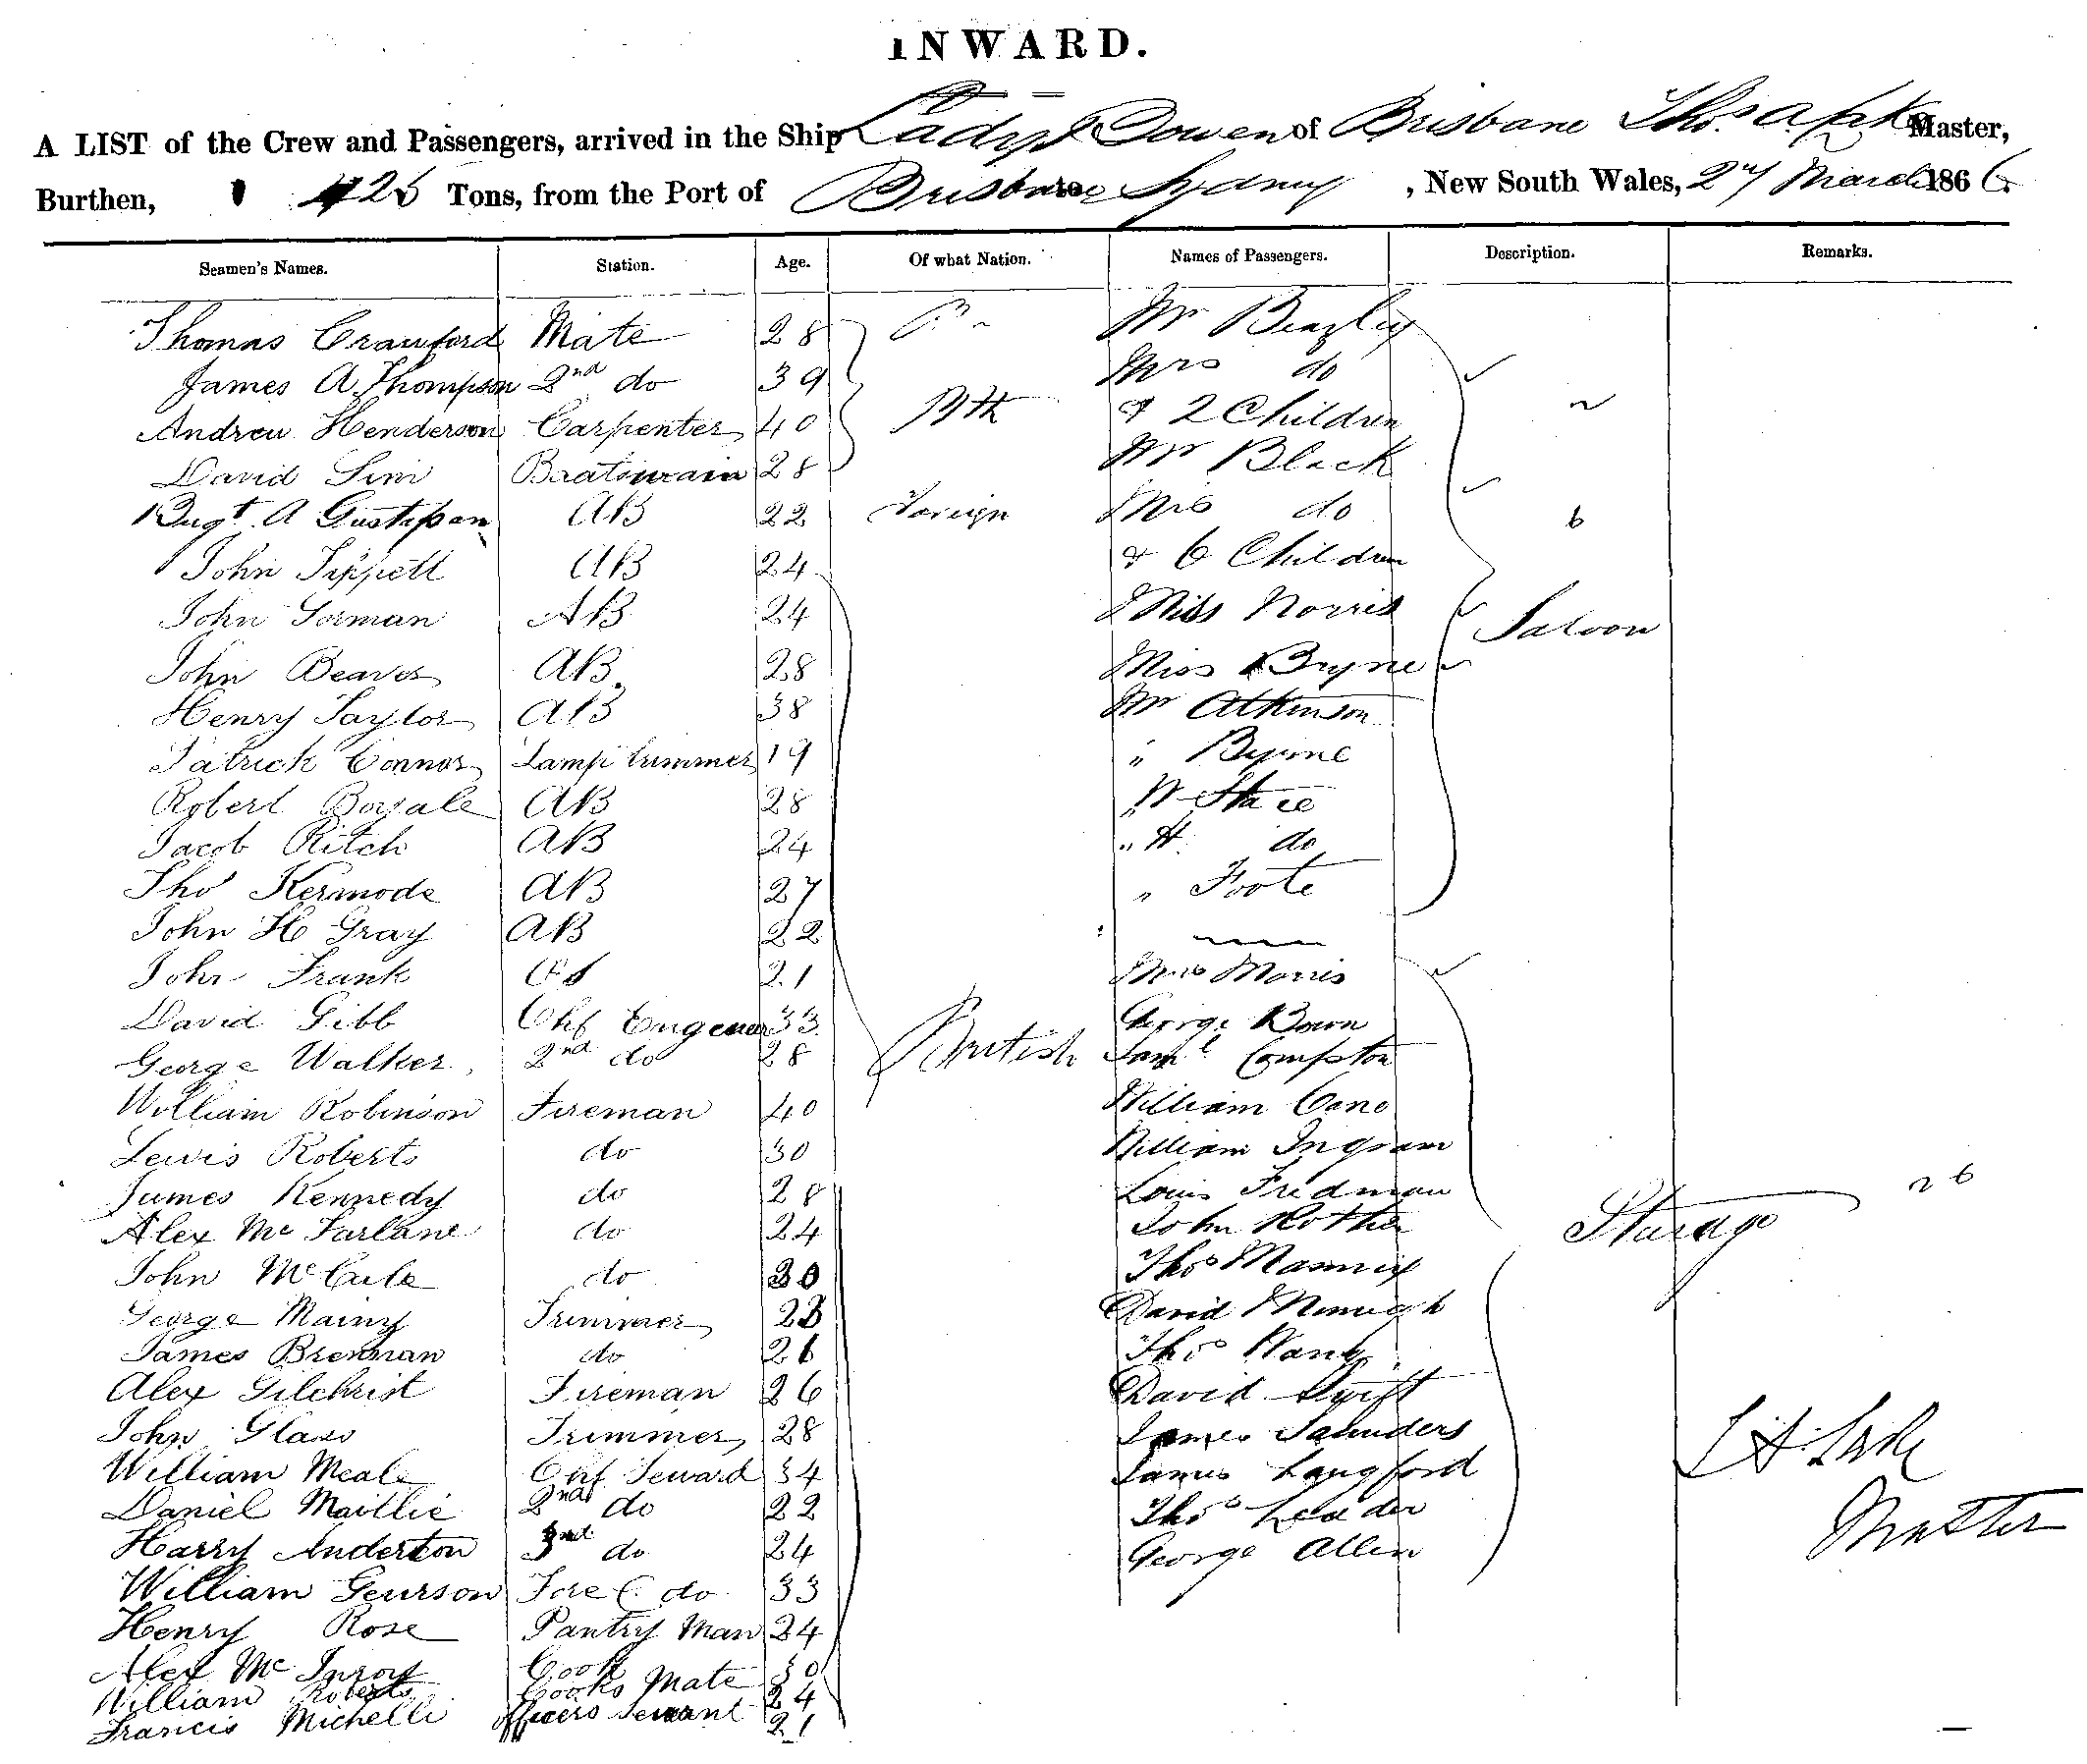 INWARD.
A LIST of the Crew and Passengers, arrived in the Ship Lady Bowen of Brisbane Thos. A. Lake Master,
Burthen, 425 Tons, from the Port of Brisbane to Sydney, New South Wales, 2nd March 1866
Seamen's Names. Station. Age. Of what Nation. Names of Passengers. Description. Remarks.
Thomas Crawford Mate 28 Mr Beazley
James A. Thompson 2nd do 39 Mrs do
Andrew Henderson Carpenter 40 & 2 Children
David Sim Boatswain 28 Mr Black
Augt. A Gustafson AB 22 Foreign Mrs do 6
John Tippett AB 24 & 6 Children
John Gorman AB 24 Miss Norris Saloon
John Beaves AB. 28 Miss Bryne
Henry Taylor AB 38 Mr Atkinson
Patrick Connor Lamp trimmer 19 " Byrne
Robert AB 28 " W Stace
Jacob Ritch AB 24 " H. do
Tho' Kermode AB 27 " Foote
John H Gray AB 22
John Frank OS 21 Mrs Morris
David Gibb Chf Engeneer 33 George Bown
George Walker 2nd do 28 British Saml Compston
William Robinson Fireman 40 William Cane
Lewis Roberts do 30 William Ingram
James Kennedy do 28 Louis Fredman 26
Alex Mc Farlane do 24 John Rother Sturage
John McCule do 30 Thos Mannix
George Mainy Trimmer 23 David
James Brennan do 26 Thos
Alex Gilchrist Fireman 26 David Swift
John Glass Trimmer 28 James Saunders
William Meale Chf Seward 34 James Langford T A Lake
Daniel Maillie 2nd do 22 Thos Leader Master
Harry Anderton 3rd do 24 George Allen
William Geurson Fore C. do 33
Henry Rose Pantry Man 24
Alex Mc Inroy Cook 30
William Roberts Cooks Mate 24
Francis Michelli officers servant 21